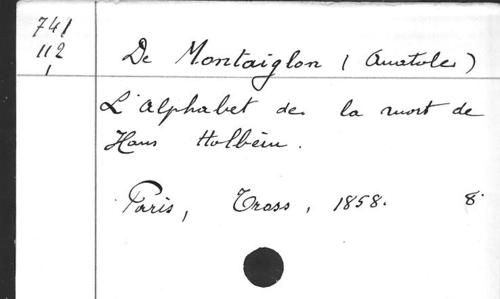 741
112
1
De Montaiglon (Anatole)
L'Alphabet de la mort de
Hans Holbein.
Paris, Tross, 1858. 8°